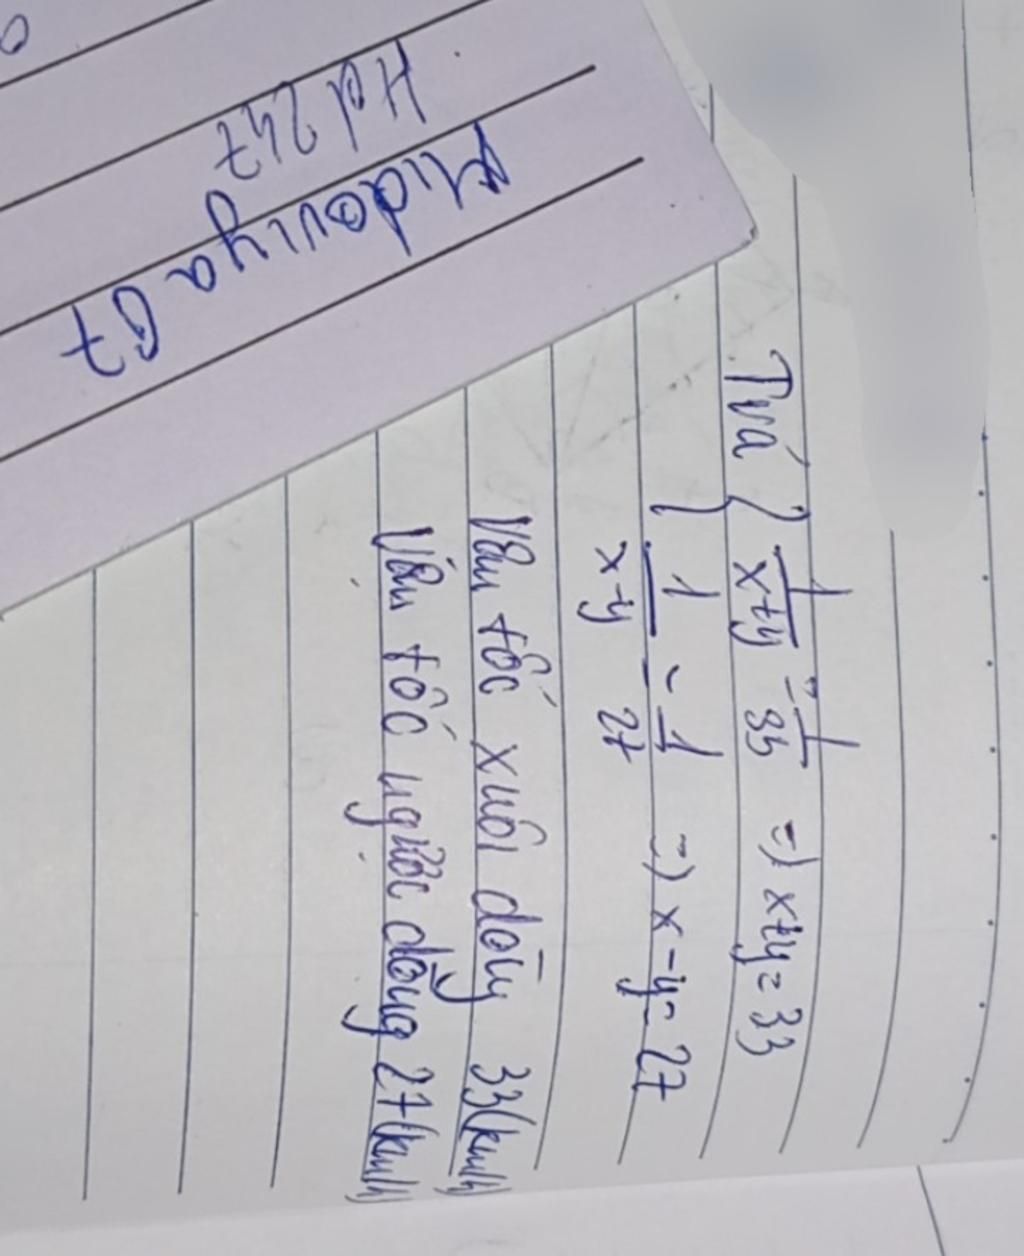 Hd 247
Midoriya 07
Trả { 1/(x+y) = 1/33 => x+y = 33
{ 1/(x-y) = 1/27 => x-y = 27
Vận tốc xuôi dòng 33(km/h)
Vận tốc ngược dòng 27(km/h)